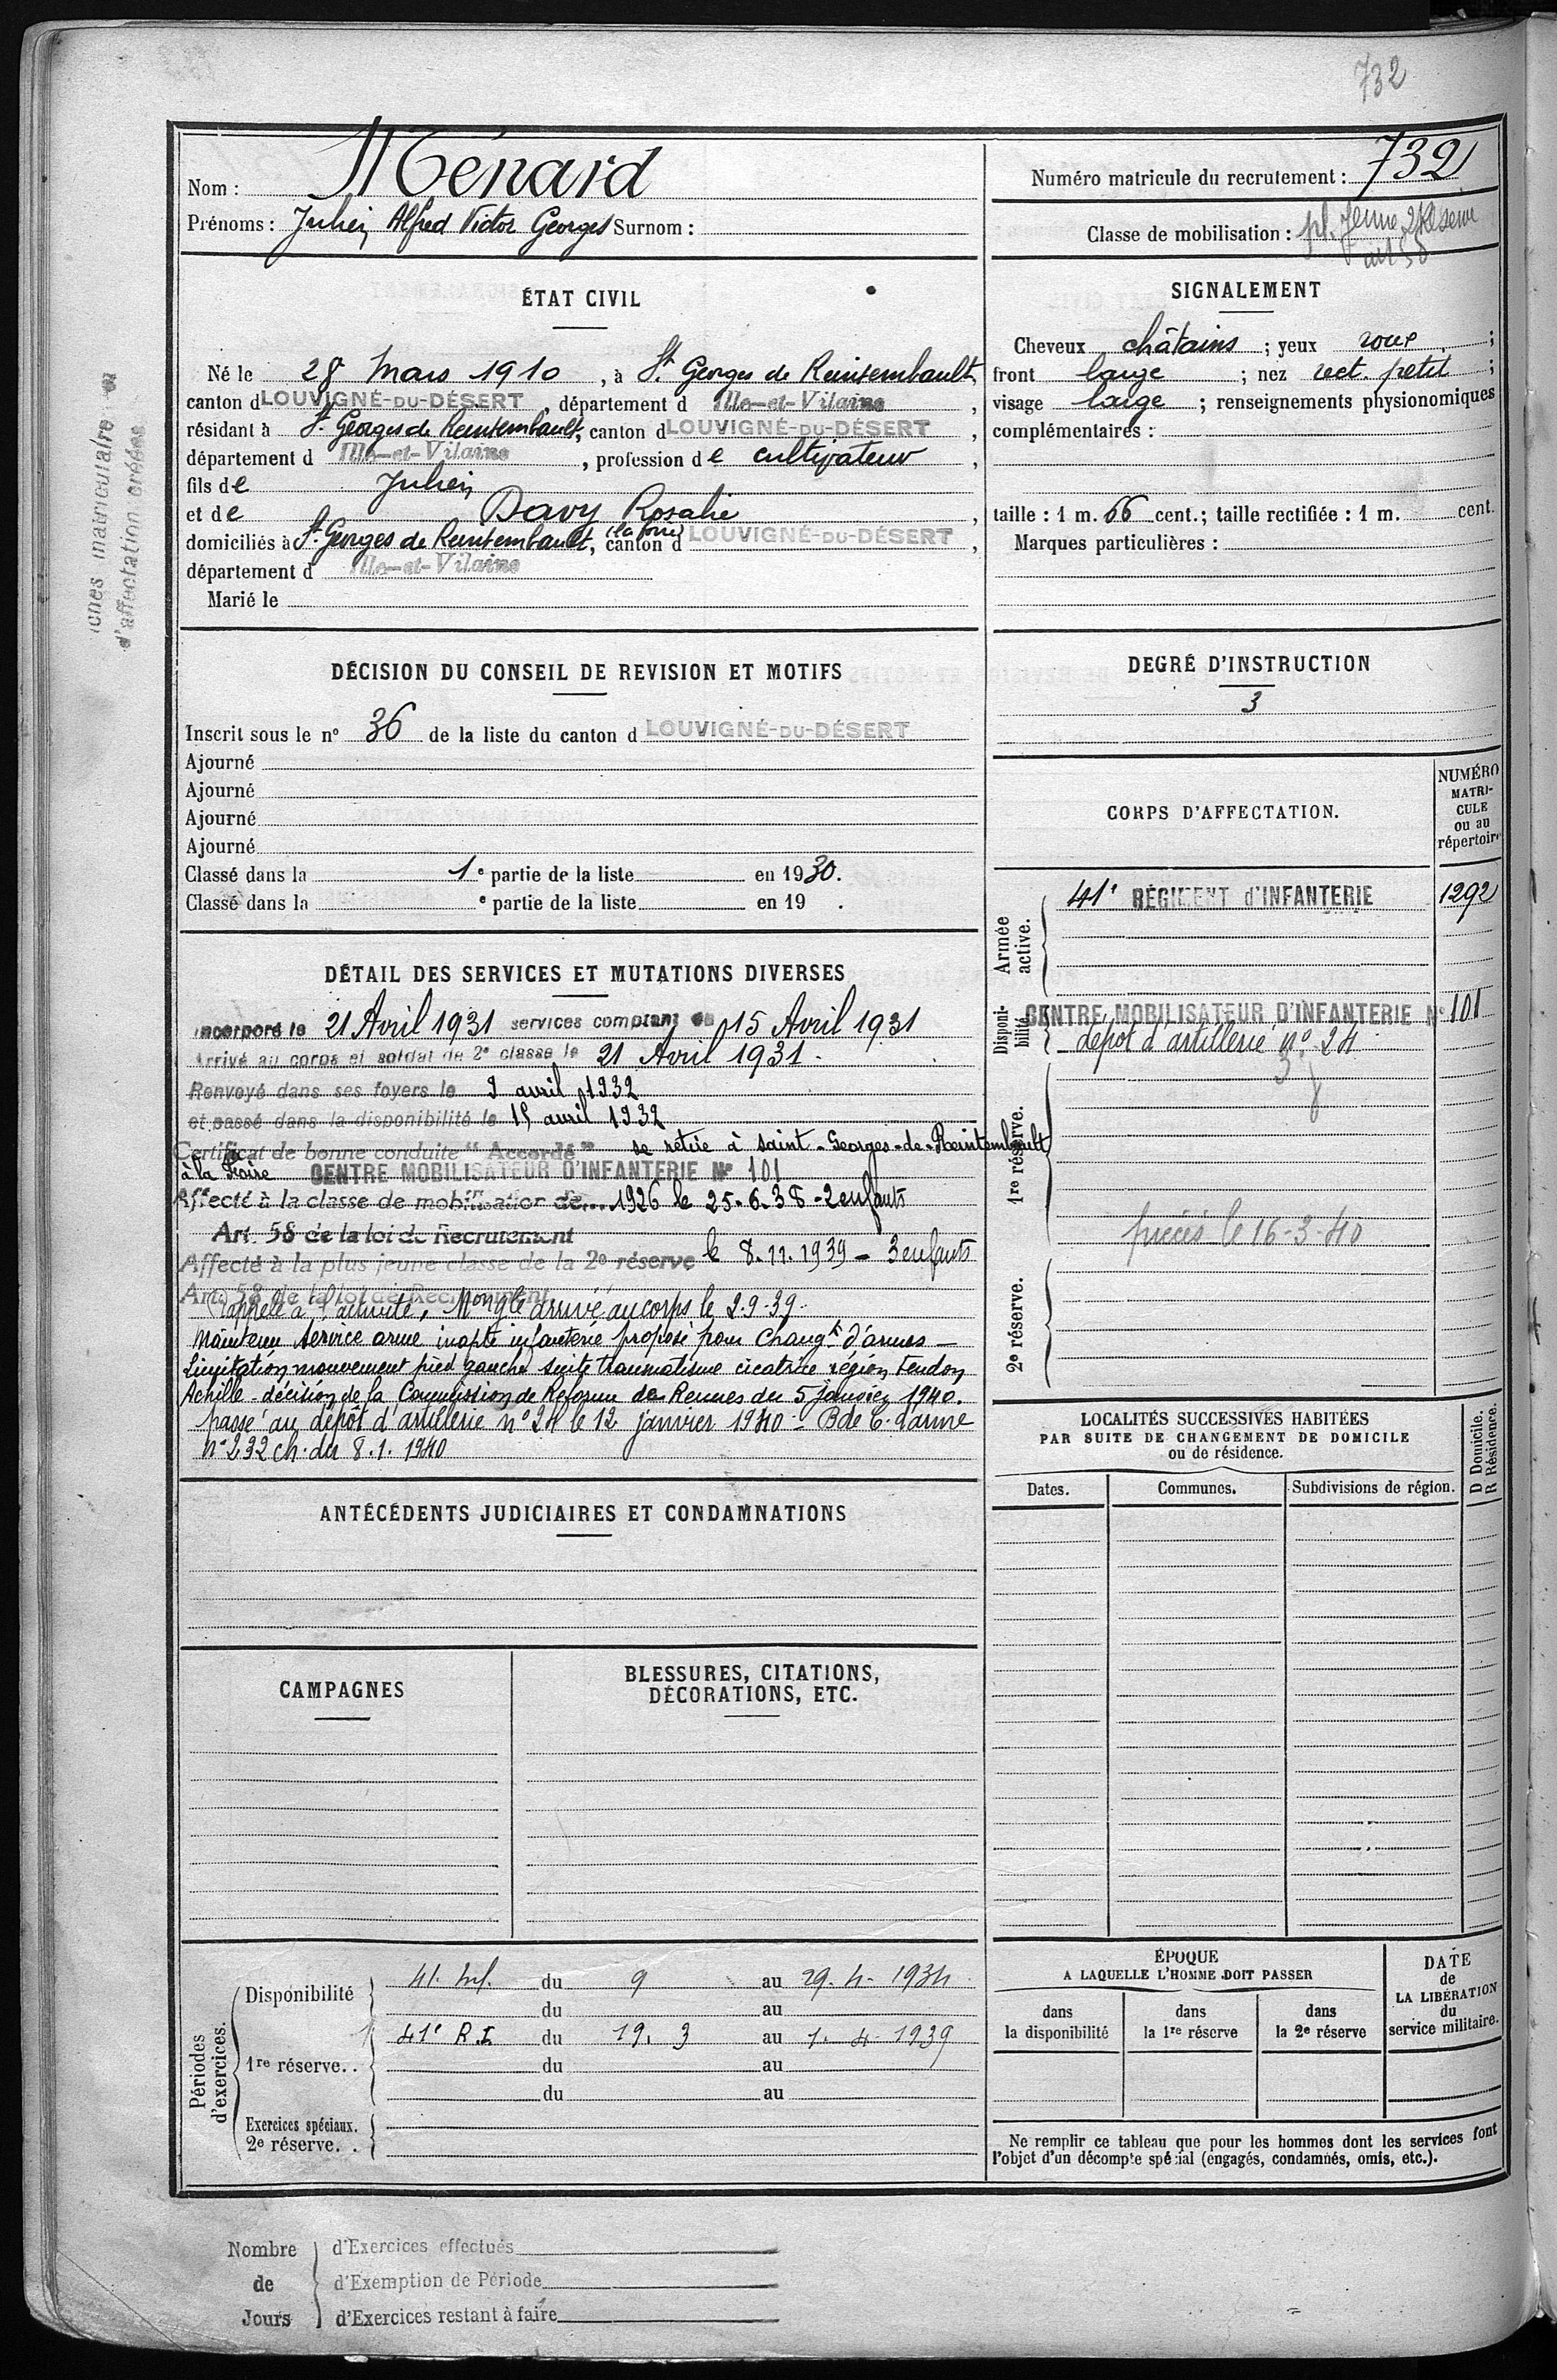 732
Nom : Ménard
Prénoms : Julien Alfred Victor Georges Surnom :
Numéro matricule du recrutement : 732
Classe de mobilisation : pl. Jeune 2 Réserve
art 58
ÉTAT CIVIL
Né le 28 Mars 1910, à St Georges de Reintembault,
canton d LOUVIGNÉ-DU-DÉSERT, département d Ille-et-Vilaine,
résidant à St Georges de Reintembault, canton d LOUVIGNÉ-DU-DÉSERT,
département d Ille-et-Vilaine, profession de cultivateur,
fils de Julien
et de Davy Rosalie,
domiciliés à St Georges de Reintembault, canton d LOUVIGNÉ-DU-DÉSERT,
département d Ille-et-Vilaine
Marié le
SIGNALEMENT
Cheveux châtains ; yeux roux ;
front large ; nez rect. petit ;
visage large ; renseignements physionomiques
complémentaires :
taille : 1 m. 66 cent.; taille rectifiée : 1 m. cent.
Marques particulières :
d'affectation créées
DÉCISION DU CONSEIL DE REVISION ET MOTIFS
Inscrit sous le n° 36 de la liste du canton d LOUVIGNÉ-DU-DÉSERT
Ajourné
Ajourné
Ajourné
Ajourné
Classé dans la 1e partie de la liste en 1930.
Classé dans la e partie de la liste en 19 .
DEGRÉ D'INSTRUCTION
3
CORPS D'AFFECTATION.
NUMÉRO
MATRI-
CULE
ou au
répertoire
Armée active.
41e RÉGIMENT d'INFANTERIE 1292
Disponi-
bilité.
CENTRE MOBILISATEUR D'INFANTERIE N° 101
dépôt d'artillerie n° 24
1re réserve.
pièces le 16-3-40
2e réserve.
DÉTAIL DES SERVICES ET MUTATIONS DIVERSES
Incorporé le 21 Avril 1931 services comptant du 15 Avril 1931
Arrivé au corps et soldat de 2e classe le 21 Avril 1931.
Renvoyé dans ses foyers le 9 avril 1932
et passé dans la disponibilité le 15 avril 1932
Certificat de bonne conduite "Accordé" se retire à Saint-Georges-de-Reintembault
à la Foire CENTRE MOBILISATEUR D'INFANTERIE N° 101
Affecté à la classe de mobilisation de 1926 le 25.6.38 - 2 enfants
Art. 58 de la loi de Recrutement
Affecté à la plus jeune classe de la 2e réserve le 8.11.1939 - 3 enfants
Art. 58 de la loi de Recrutement
Rappelé à l'activité, Mon gle arrivé au corps le 2.9.39.
Maintenu service armé inapte infanterie proposé pour changt d'armes -
Limitation mouvement pied gauche suite traumatisme cicatrice région tendon
Achille - décision de la Commission de Réforme de Rennes du 5 Janvier 1940.
passé au dépôt d'artillerie n° 24 le 12 janvier 1940 - Bde C. d'arme
n° 232 ch. du 8.1.1940
ANTÉCÉDENTS JUDICIAIRES ET CONDAMNATIONS
LOCALITÉS SUCCESSIVES HABITÉES
PAR SUITE DE CHANGEMENT DE DOMICILE
ou de résidence.
D Domicile.
R Résidence.
Dates. Communes. Subdivisions de région.
CAMPAGNES
BLESSURES, CITATIONS,
DÉCORATIONS, ETC.
Périodes
d'exercices.
Disponibilité
41. Inf. du 9 au 29.4.1934
du au
1re réserve..
41e R.I. du 19.3 au 1.4.1939
du au
du au
Exercices spéciaux.
2e réserve. .
ÉPOQUE
A LAQUELLE L'HOMME DOIT PASSER
dans
la disponibilité
dans
la 1re réserve
dans
la 2e réserve
DATE
de
LA LIBÉRATION
du
service militaire.
Ne remplir ce tableau que pour les hommes dont les services font
l'objet d'un décompte spécial (engagés, condamnés, omis, etc.).
Nombre
de
Jours
d'Exercices effectués
d'Exemption de Période
d'Exercices restant à faire